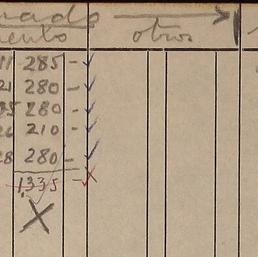 uado
iento otros
11 285 -
21 280 -
25 280 -
26 210 -
28 280 -
1,335 -
X